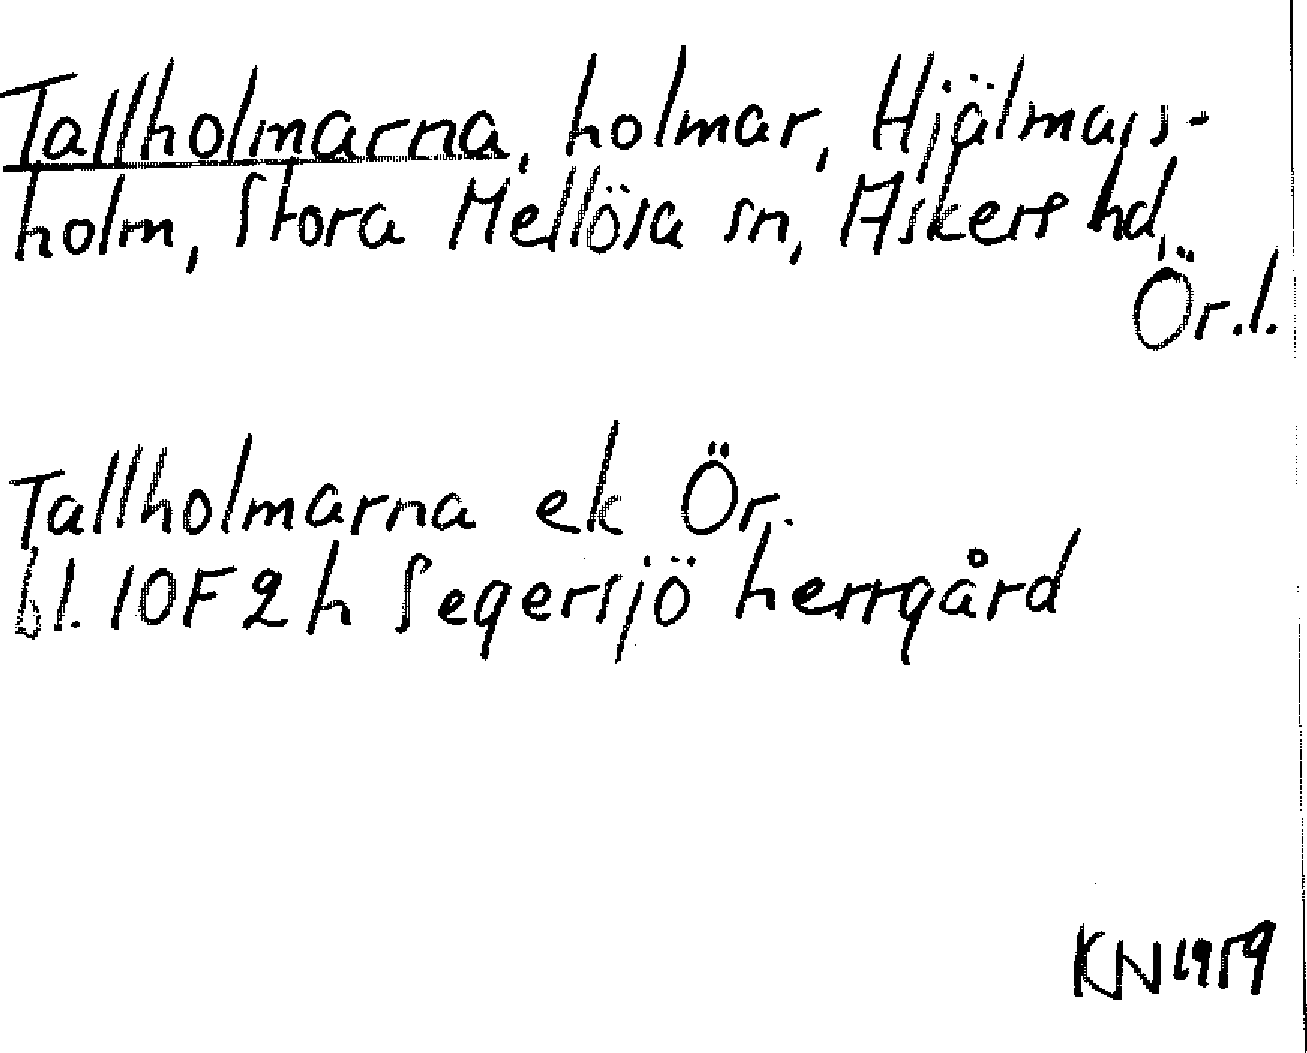 Tallholmarna, holmar, Hjälmars-
holm, Stora Mellösa sn, Askers hd,
Ör.l.
Tallholmarna ek Ör.
bl. 10F2h Segersjö herrgård
KN1959